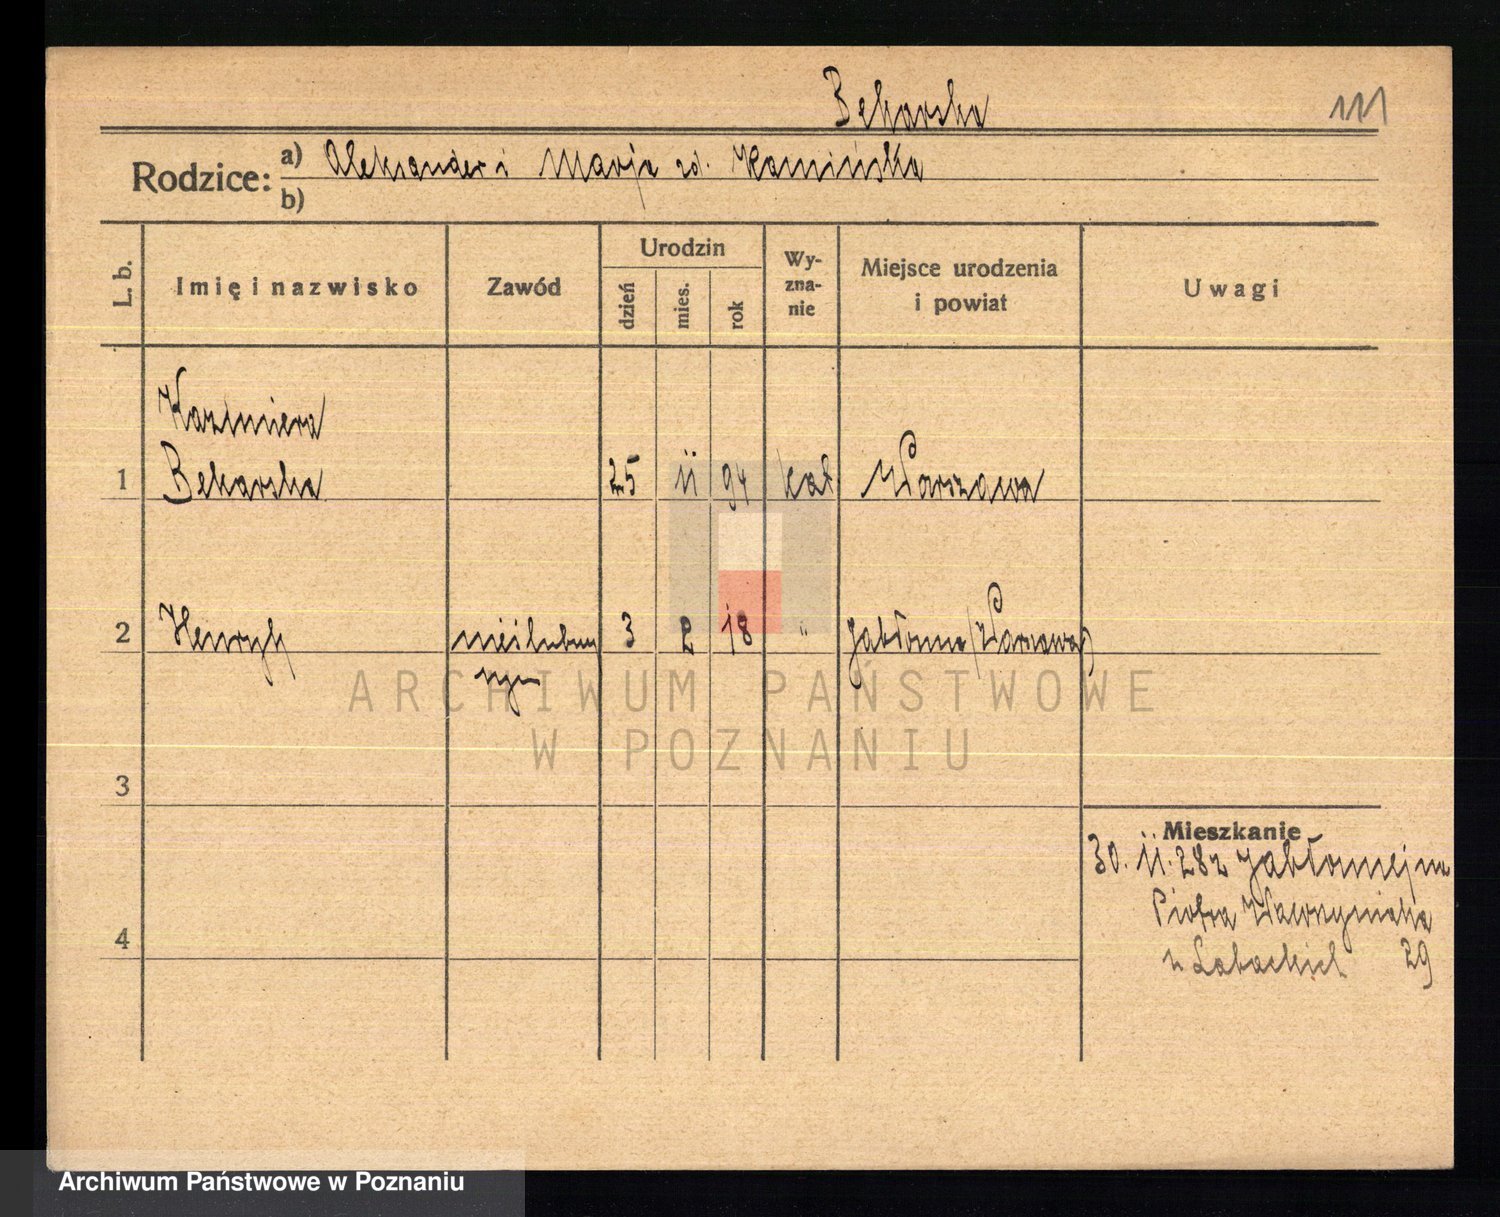 Bekarska 111
Rodzice: a) Aleksander i Marja zd. Kamińska
b)
L. b. Imię i nazwisko Zawód Urodzin dzień mies. rok Wy-zna-nie Miejsce urodzenia i powiat Uwagi
Kazimiera
1 Bekarska 25 11 94 kat Warszawa
2 Henryk nieślubny 3 2 18 " Jabłonna (Warszawa)
syn
3
Mieszkanie
30. 11. 28 z Jabłonnej
Piotra Wawrzyniaka
4 29
ARCHIWUM PAŃSTWOWE
W POZNANIU
Archiwum Państwowe w Poznaniu